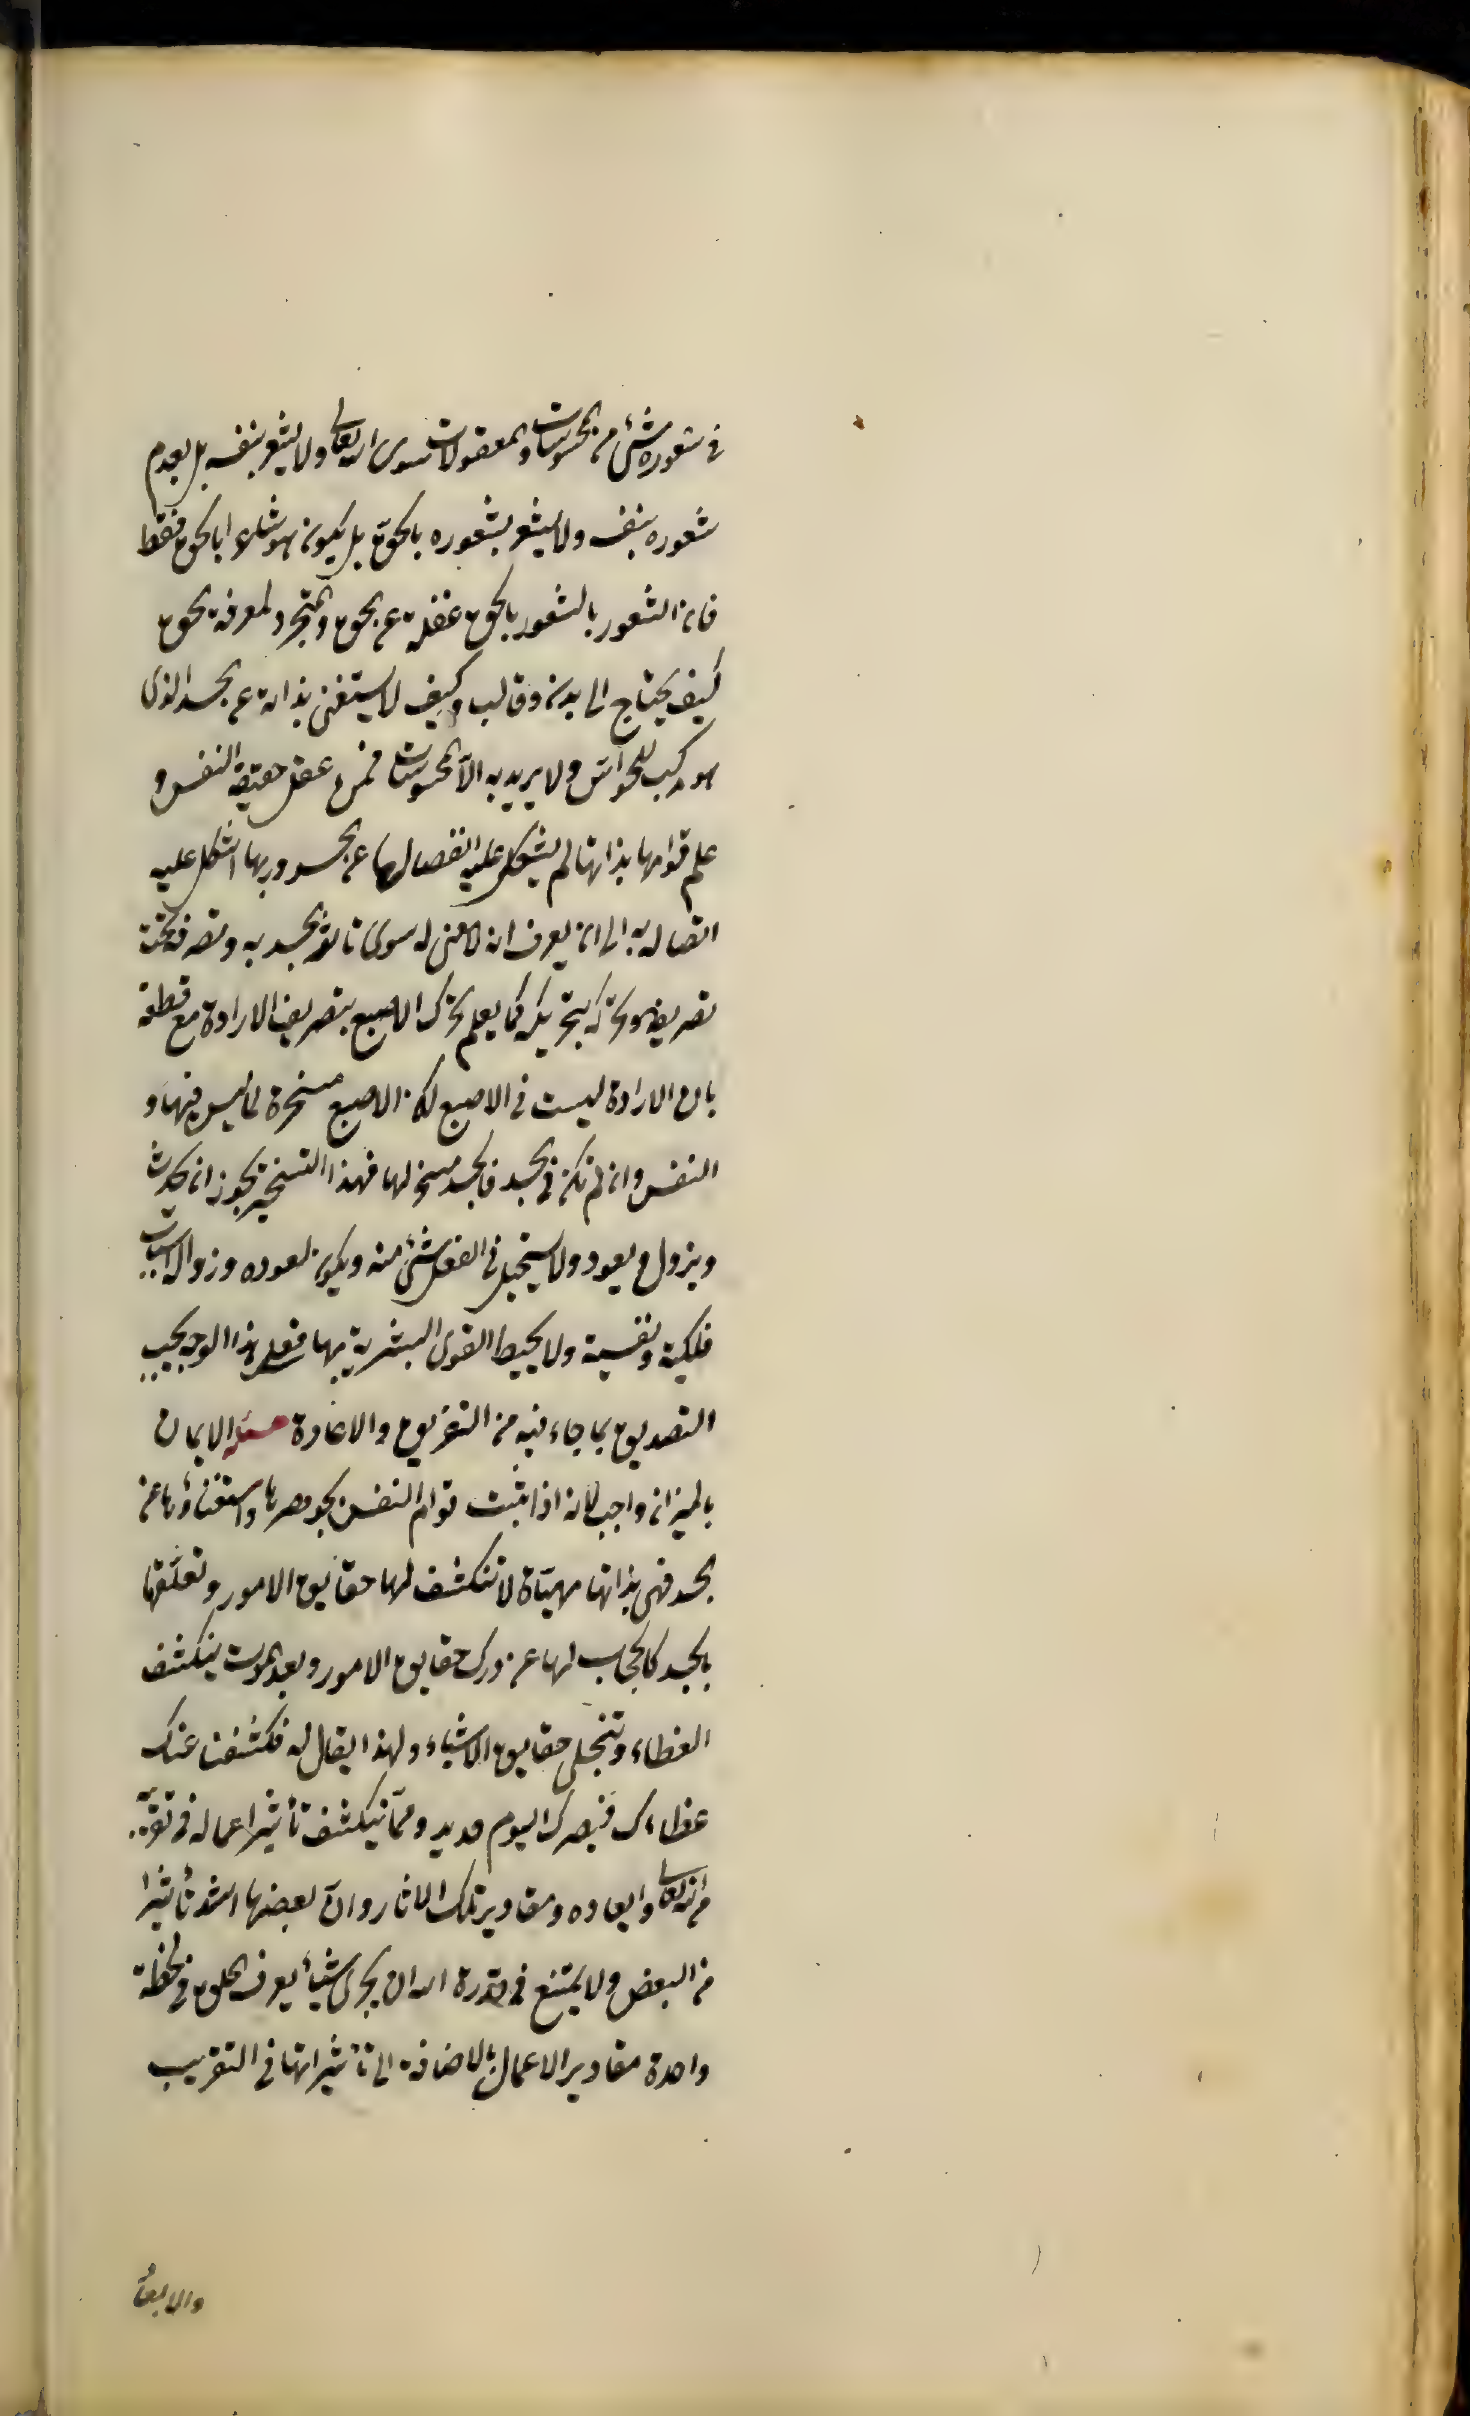 في شعوره شئ من المحسوسات والمعقولات سوى الله تعالى ولا يشعر بنفسه بل يعدم
شعوره بنفسه ولا يشعر بشعوره بالحق بل يكون هو شاعرا بالحق فقط
فان الشعور بالشعور بالحق غفلة عن الحق والمتجرد لمعرفة الحق
كيف يحتاج الى بدن وقالب وكيف لا يستغنى بذاته عن الجسد الذى
هو مركب للحواس ولا يريد به الا المحسوسات فمن عقل حقيقة النفس و
علم قوامها بذاتها لم يشكل عليه انفصالها عن الجسد وربما اشكل عليه
اتصاله به الى ان يعرف انه لا معنى له سوى تاثر الجسد به وتصرفه تحت
تصريفه وتحركه بتحريكه كما يعلم تحرك الاصبع بتصريف الارادة مع قطعه
بان الارادة ليست في الاصبع لكن الاصبع مسخرة لما ليس فيها و
النفس وان لم تكن في الجسد فالجسد مسخر لها فهذا التسخير يجوز ان يحدث
ويزول ويعود ولا يستحيل في العقل شئ منه ويكون لعوده وزواله اسباب
فلكية ونفسية ولا يحيط القوى البشرية بها فعلى هذا الوجه يجب
التصديق بما جاء فيه من التفريق والاعادة مسئلة الايمان
بالميزان واجب لانه اذا ثبت قوام النفس بجوهرها واستغناؤها عن
الجسد فهى بذاتها مهيأة لا تنكشف لها حقايق الامور وتعلقها
بالجسد كالحجاب لها عن درك حقايق الامور وبعد الموت ينكشف
الغطاء وتنجلى حقايق الاشياء ولهذا يقال له فكشفنا عنك
غطاءك فبصرك اليوم حديد ومما ينكشف تأثير اعماله في تقريبه
من الله تعالى وابعاده ومقادير تلك الاثار وان بعضها اشد تأثيرا
من البعض ولا يمتنع في قدرة الله ان يجرى شيأ يعرف الخلق في لحظة
واحدة مقادير الاعمال بالاضافة الى تأثيراتها في التقريب
والابعاد